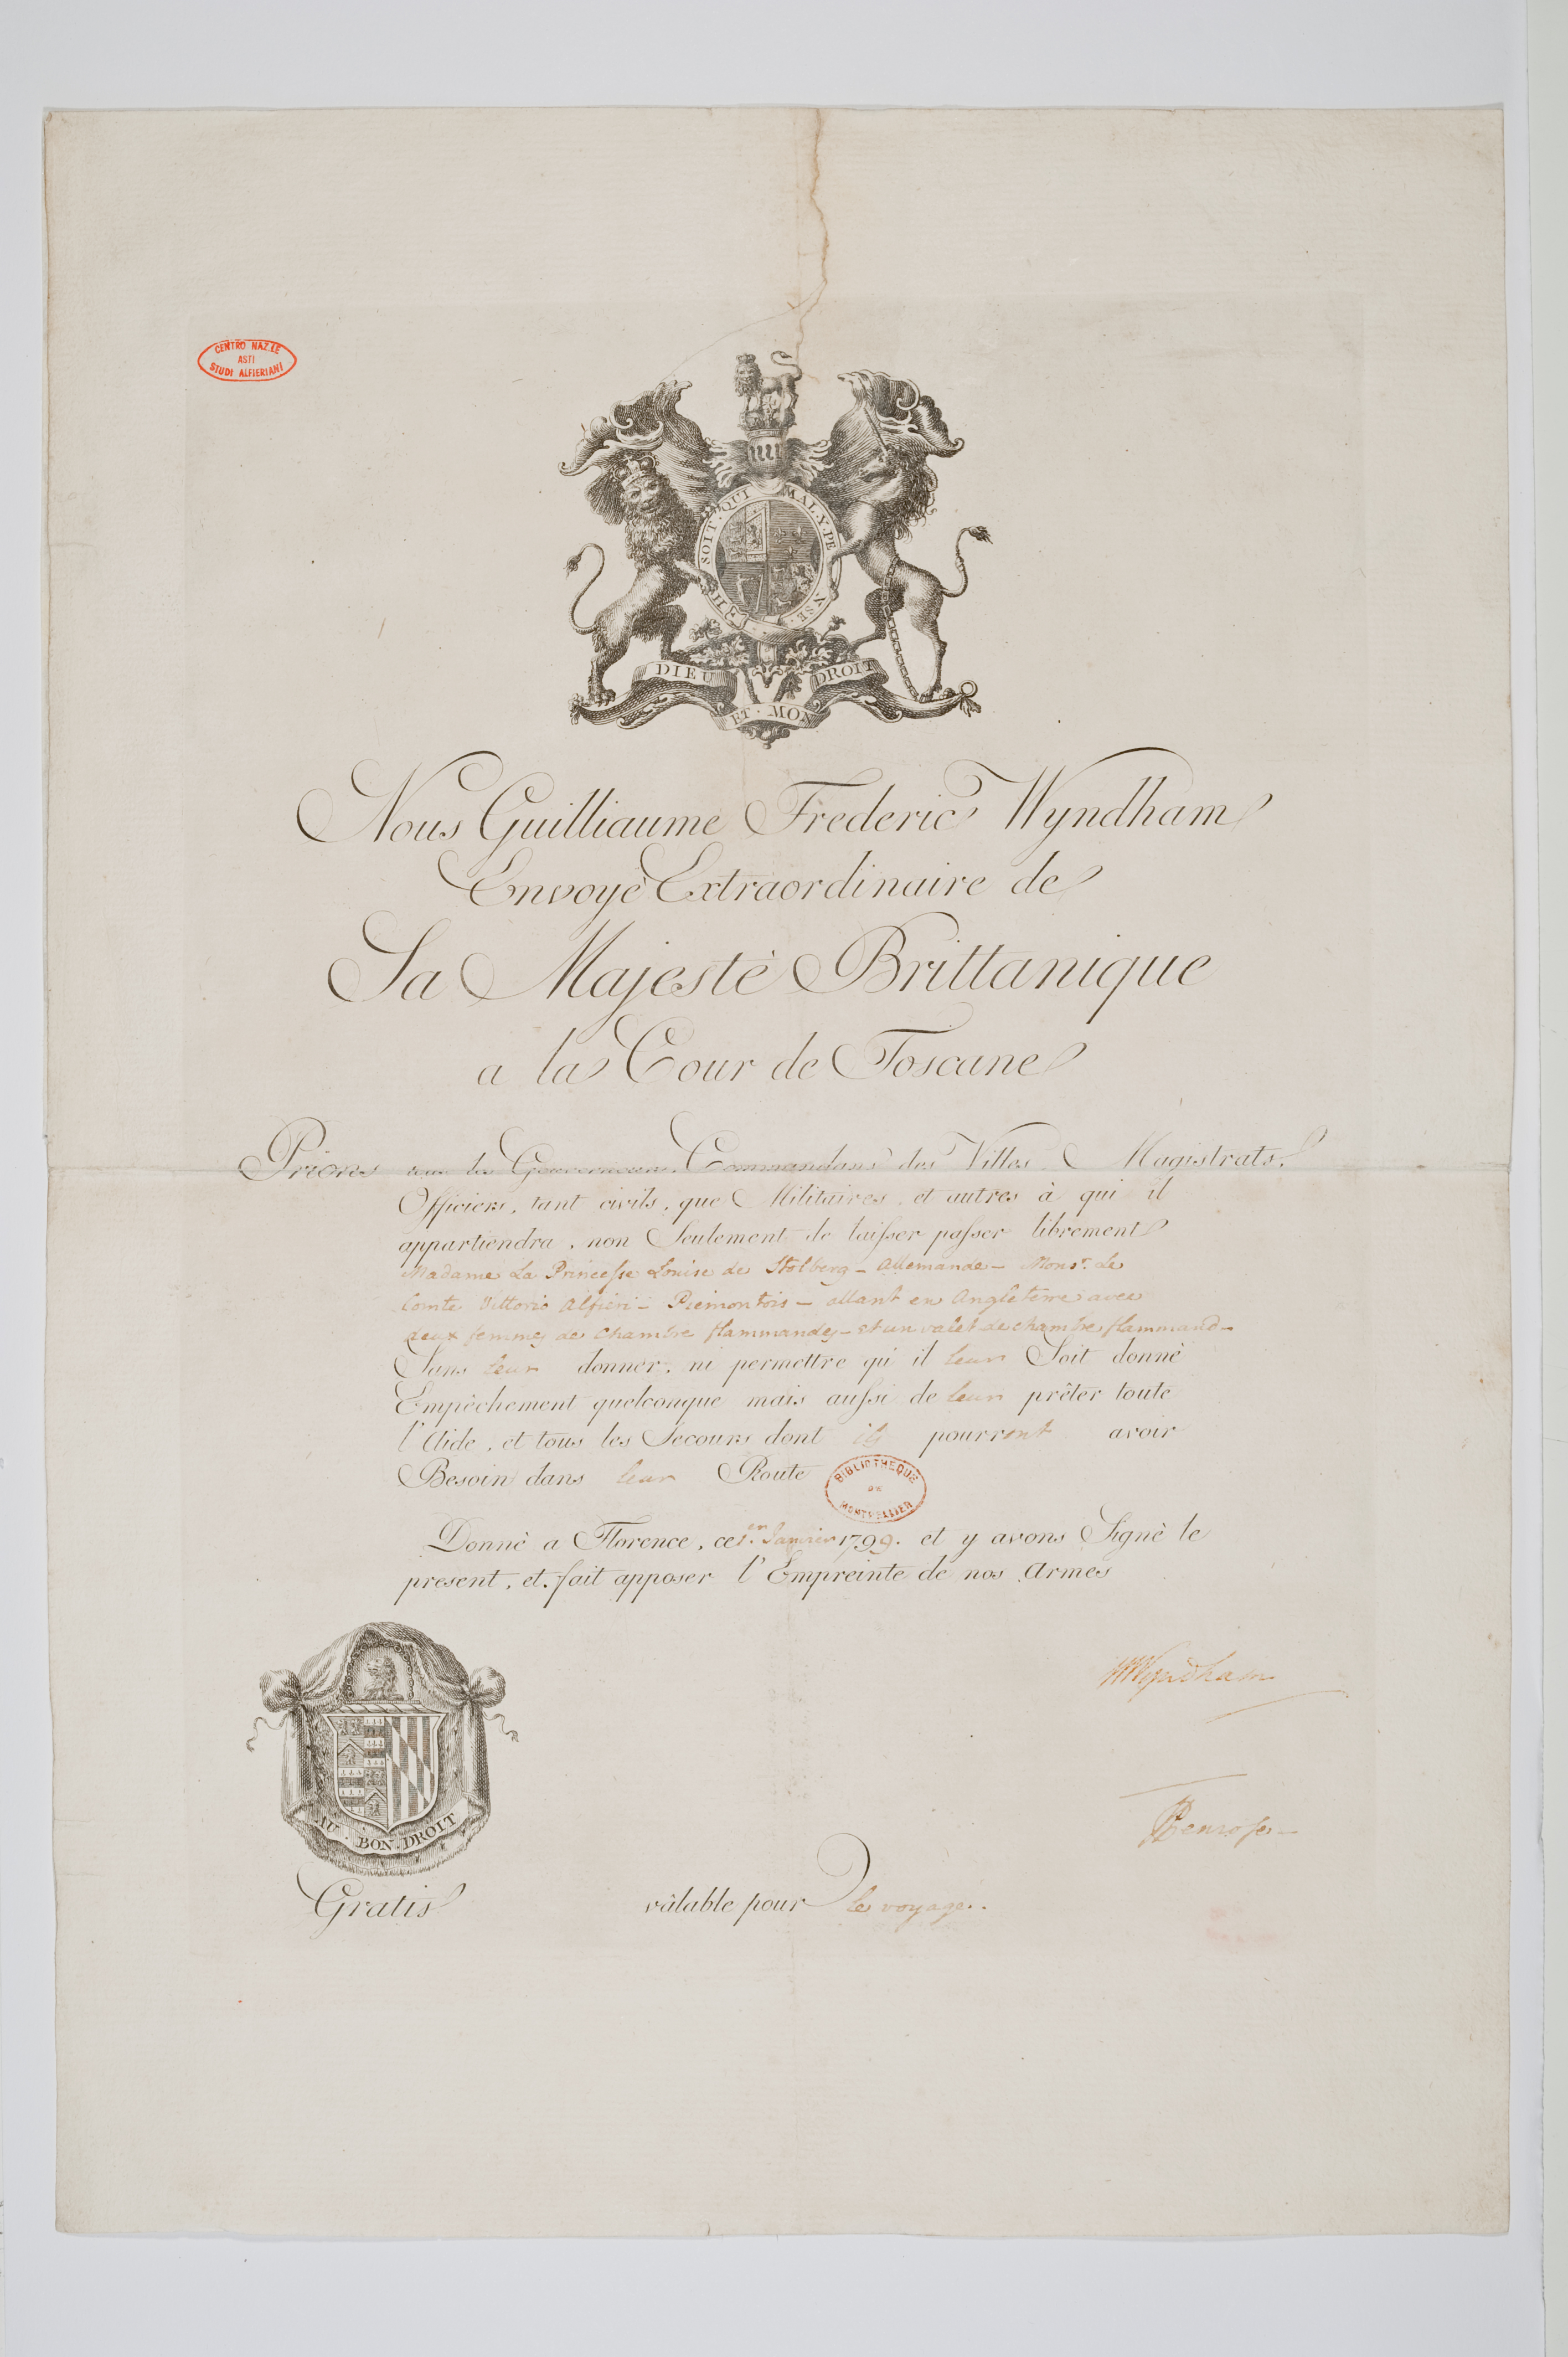 CENTRO NAZ.LE
ASTI
STUDI ALFIERIANI
HO SOIT · QUI MAL · Y · PE NSE ·
DIEU ET · MON DROIT
Nous Guilliaume Frederic Wyndham
Envoyè Extraordinaire de
Sa Majestè Brittanique
a la Cour de Toscane
Prions tous les Gouverneurs, Commandans des Villes, Magistrats,
Officiers, tant civils, que Militaires, et autres à qui il
appartiendra, non Seulement de laisser passer librement
Madame La Princesse Louise de Stolberg - Allemande - Monsr. Le
Comte Vittorio Alfieri - Piemontois - allant en Angleterre avec
deux femmes de chambre flammandes - et un valet de chambre flammand -
Sans leur donner, ni permettre qu'il leur Soit donnè
Empèchement quelconque mais aussi de leur prêter toute
l'Aide, et tous les Secours dont ils pourront avoir
Besoin dans leur Route
BIBLIOTHEQUE
DE
MONTPELLIER
Donnè a Florence, ce 1.er Janvier 1799. et y avons Signè le
present, et fait apposer l'Empreinte de nos Armes
WWyndham
Penrose -
AU · BON · DROIT
Gratis valable pour le voyage.